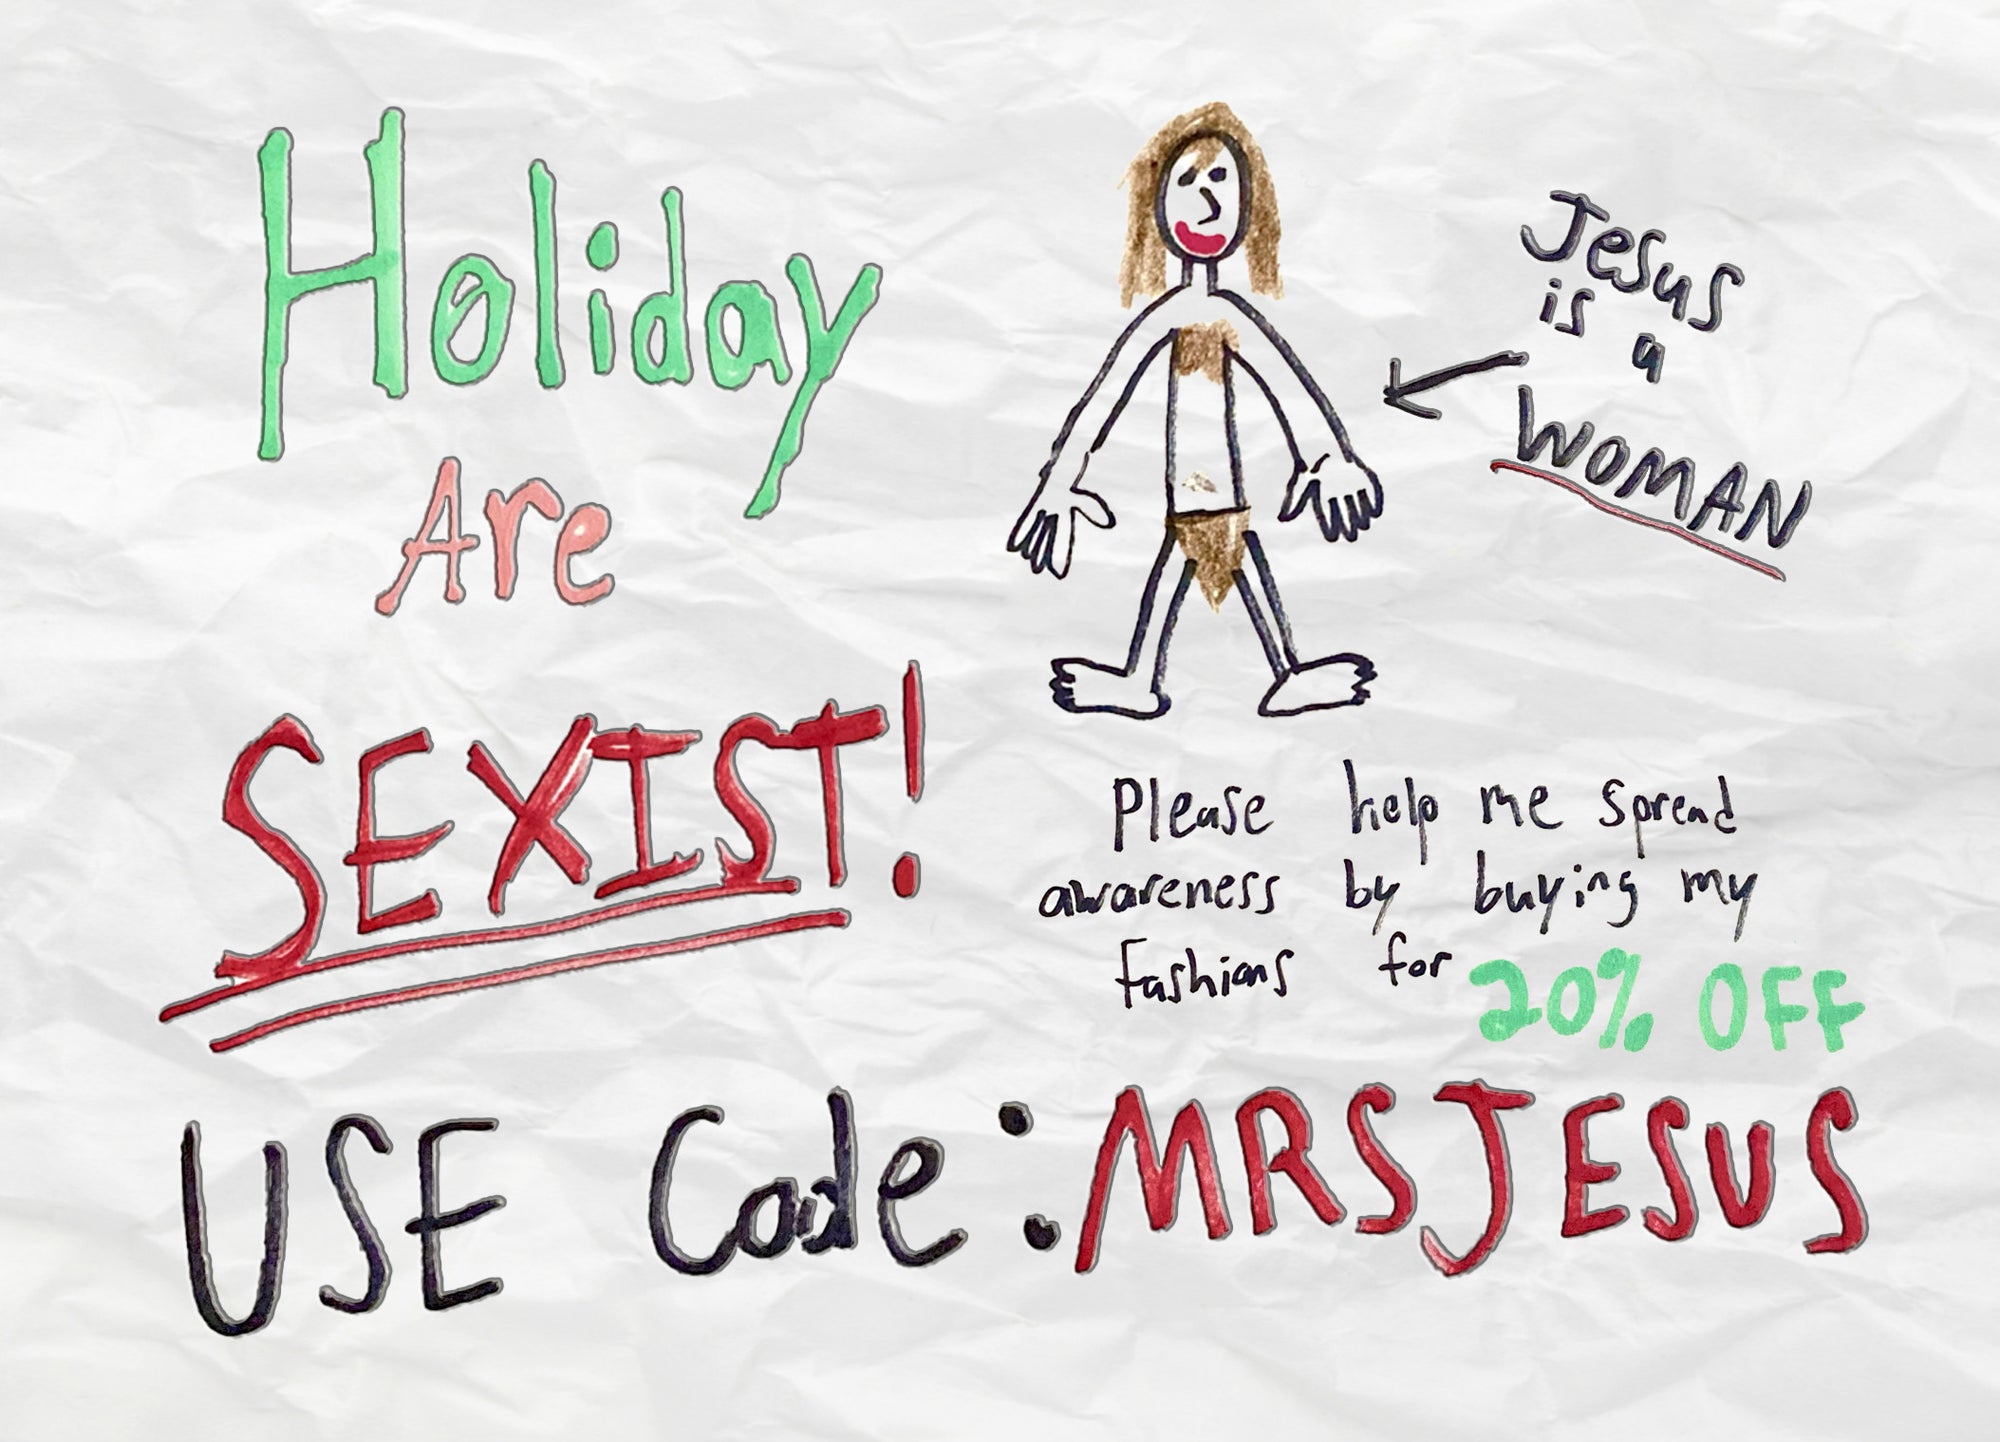 Holiday
Are
SEXIST!
Jesus
is a
WOMAN
Please help me spread
awareness by buying my
fashions for 20% OFF
USE Code: MRSJESUS